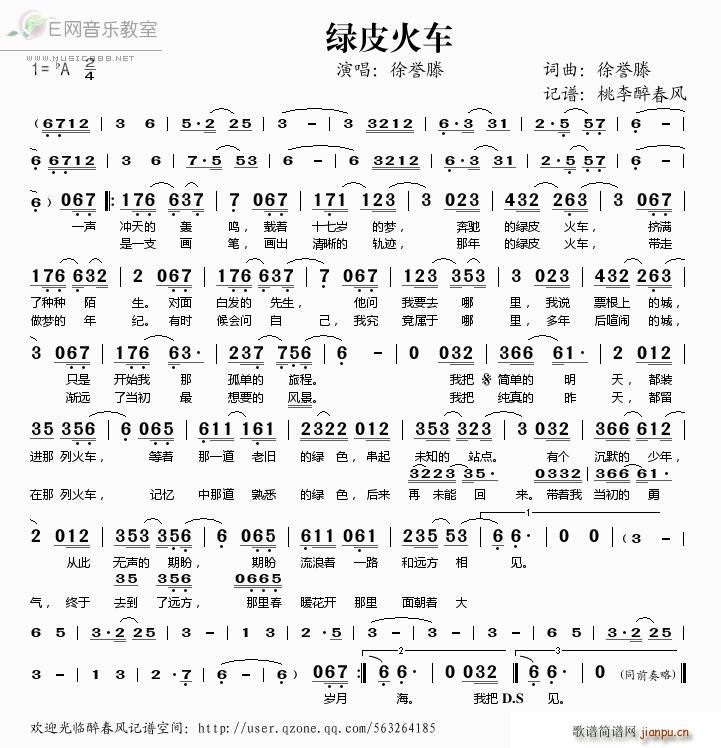 E网音乐教室
www.music888.net
绿皮火车
1=♭A 2/4 演唱：徐誉滕 词曲：徐誉滕
记谱：桃李醉春风
（6712 | 3 6 | 5·2 25 | 3 - | 3 3212 | 6·3 31 | 2·5 57 |
6 6712 | 3 6 | 7·5 53 | 6 - | 6 3212 | 6·3 31 | 2·5 57 |
6）067 |: 176 637 | 7 067 | 171 123 | 3 023 | 432 263 | 3 067 |
一声 冲天的 轰 鸣，载着 十七岁 的梦， 奔驰 的绿皮 火车， 挤满
是一支 画 笔，画出 清晰的 轨迹， 那年 的绿皮 火车， 带走
176 632 | 2 067 | 176 637 | 7 067 | 123 353 | 3 023 | 432 263 |
了种种 陌 生。对面 白发的 先生， 他问 我要去 哪 里，我说 票根上 的城，
做梦的 年 纪。有时 候会问 自 己，我究 竟属于 哪 里，多年 后喧闹 的城，
3 067 | 176 63· | 237 756 | 6 - | 0 032 | 366 61· | 2 012 |
只是 开始我 那 孤单的 旅程。 我把 𝄋 简单的 明 天，都装
渐远 了当初 最 想要的 风景。 我把 纯真的 昨 天，都留
35 356 | 6 065 | 611 161 | 2322 012 | 353 323 | 3 032 | 366 612 |
进那 列火车， 等着 那一道 老旧 的绿 色，串起 未知的 站点。 有个 沉默的 少年，
3223 35· | 0332 | 366 61· |
在那 列火车， 记忆 中那道 熟悉 的绿 色，后来 再 未能 回 来。带着我 当初的 勇
2 012 | 353 356 | 6 065 | 611 061 | 235 53 | 1 6 6· | 0 0 |（3 -
从此 无声的 期盼， 期盼 流浪着 一路 和远方 相 见。
35 356 0665
气，终于 去到 了远方， 那里春 暖花开 那里 面朝着 大
6 5 | 3·2 25 | 3 - | 1 3 | 2·5 | 3 - | 3 - | 6 5 | 3·2 25 |
3 - | 1 3 | 2·7 | 6 - | 6 -）067 :| 2 6 6· | 0 032 :| 3 6 6· | 0 0 |（同前奏略）‖
岁月 海。 我把 D.S 见。
欢迎光临醉春风记谱空间：http://user.qzone.qq.com/563264185
歌谱简谱网
jianpu.cn